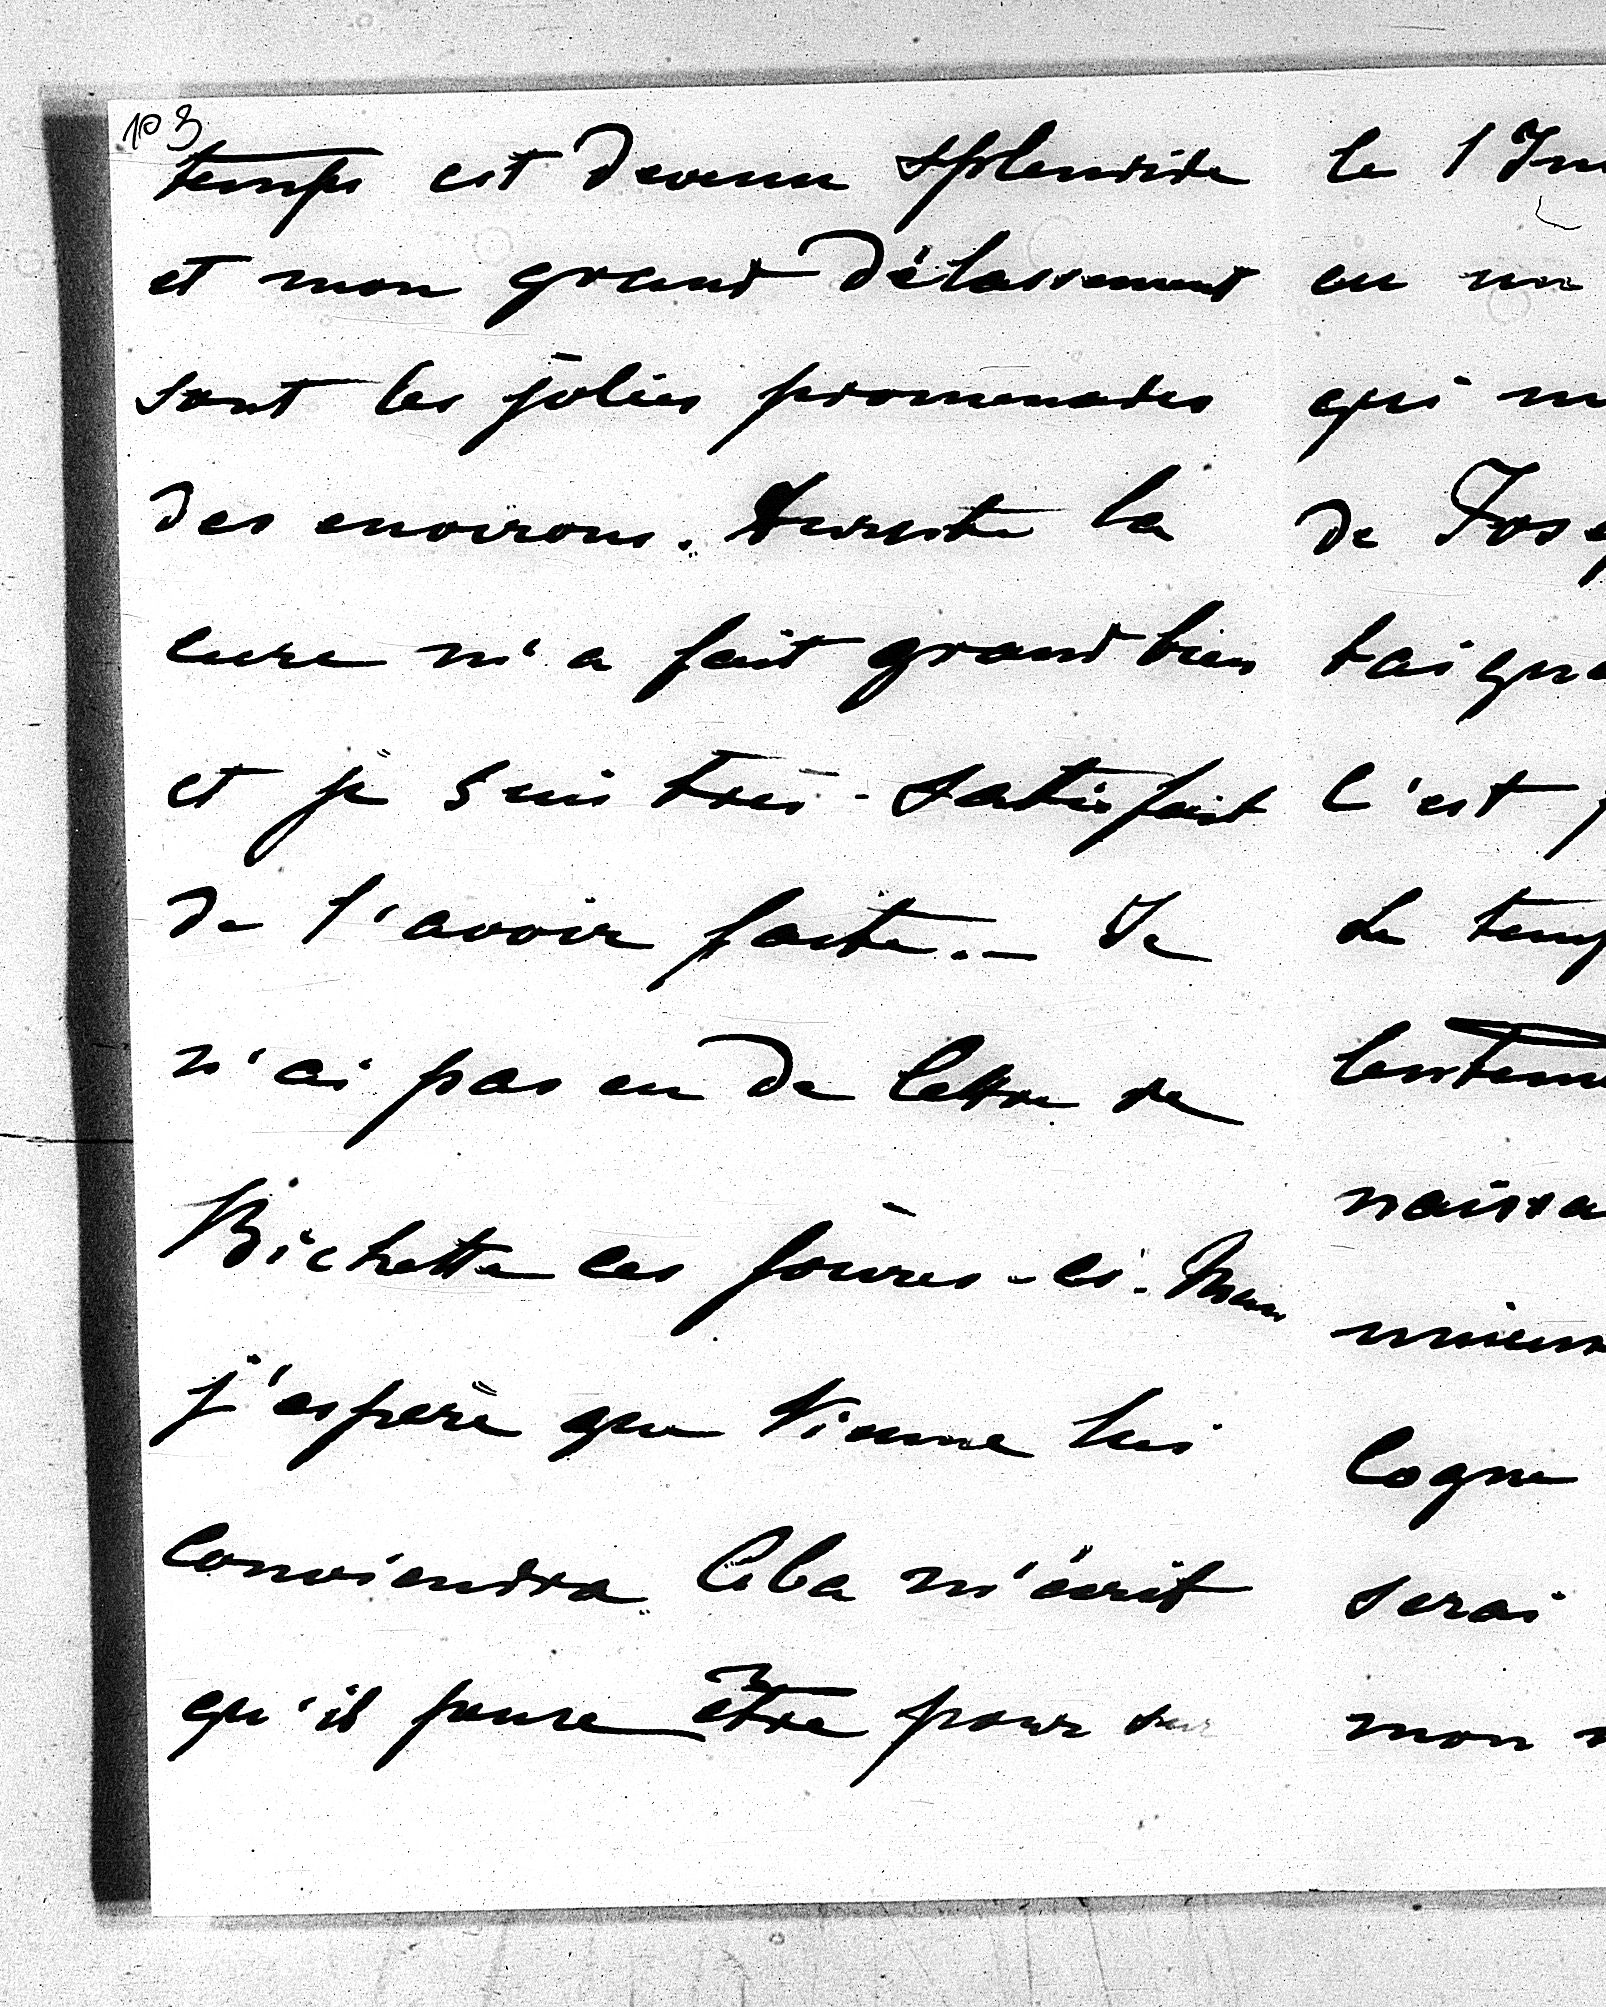 103
temps est devenu splendide
et mon grand délassement
sont les jolies promenades
des environs. du reste la
cure m'a fait grand bien
et je suis très-satisfait
de l'avoir faite. — Je
n'ai pas eu de lettre de
Bichette ces jours-ci. Mais
j'espère que Vienne lui
conviendra. Ceba m'écrit
qu'il pense être pour sur
le 1 Jui
eu un
qui m
de Josep
baigna
C'est p
Le temp
lenteme
naissa
mieux
logne
serai
mon